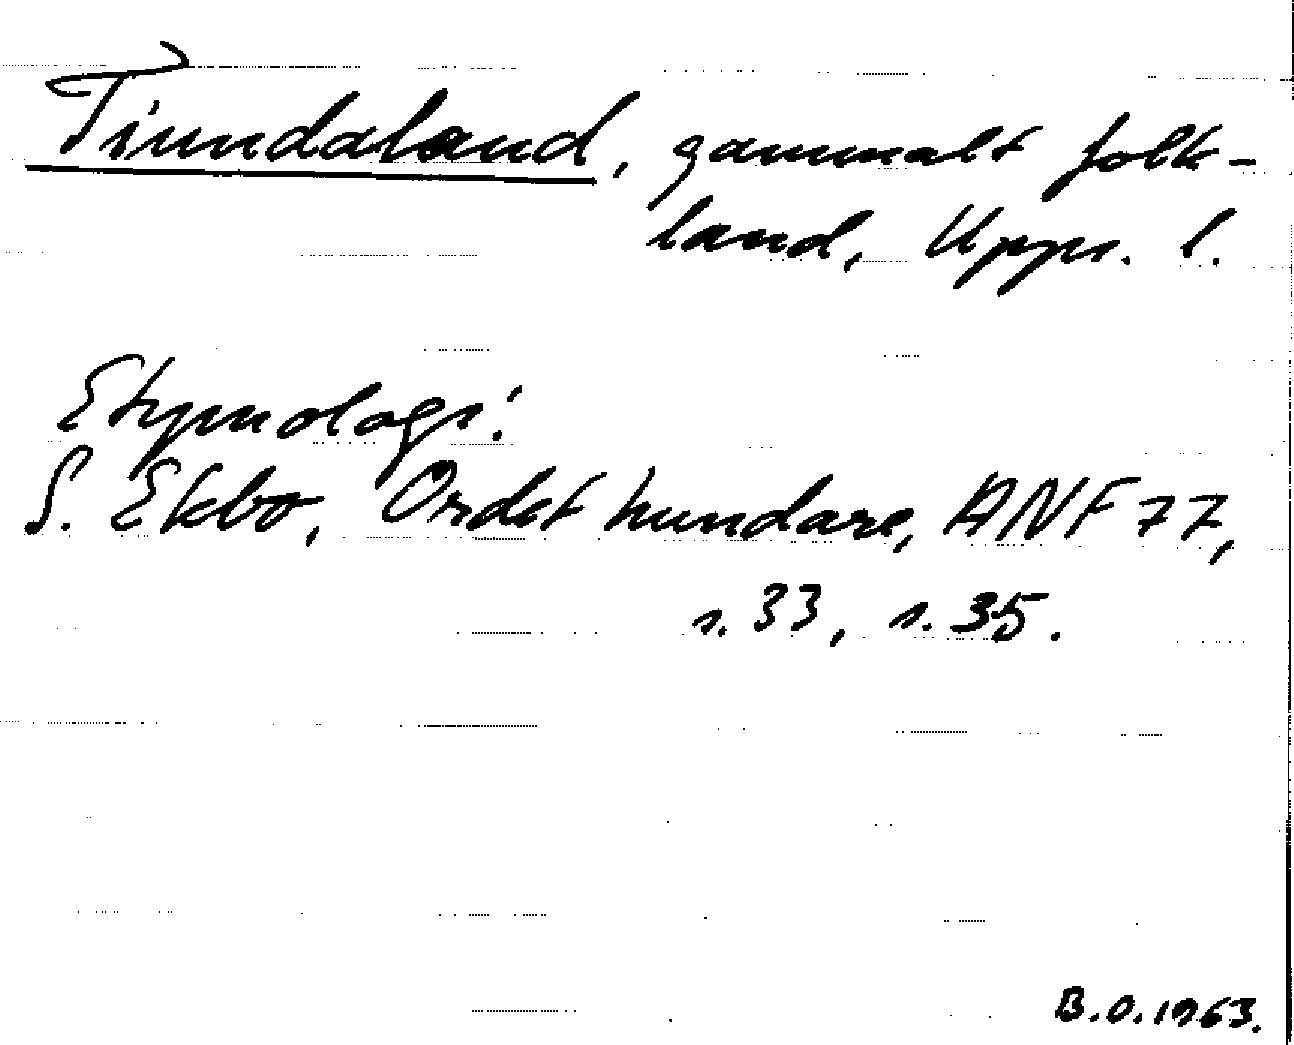 Tiundaland, gammalt folk-
land, Upps. l.
Etymologi:
S. Ekbo, Ordet hundare, ANF 77,
s. 33, s. 35.
B.O. 1963.